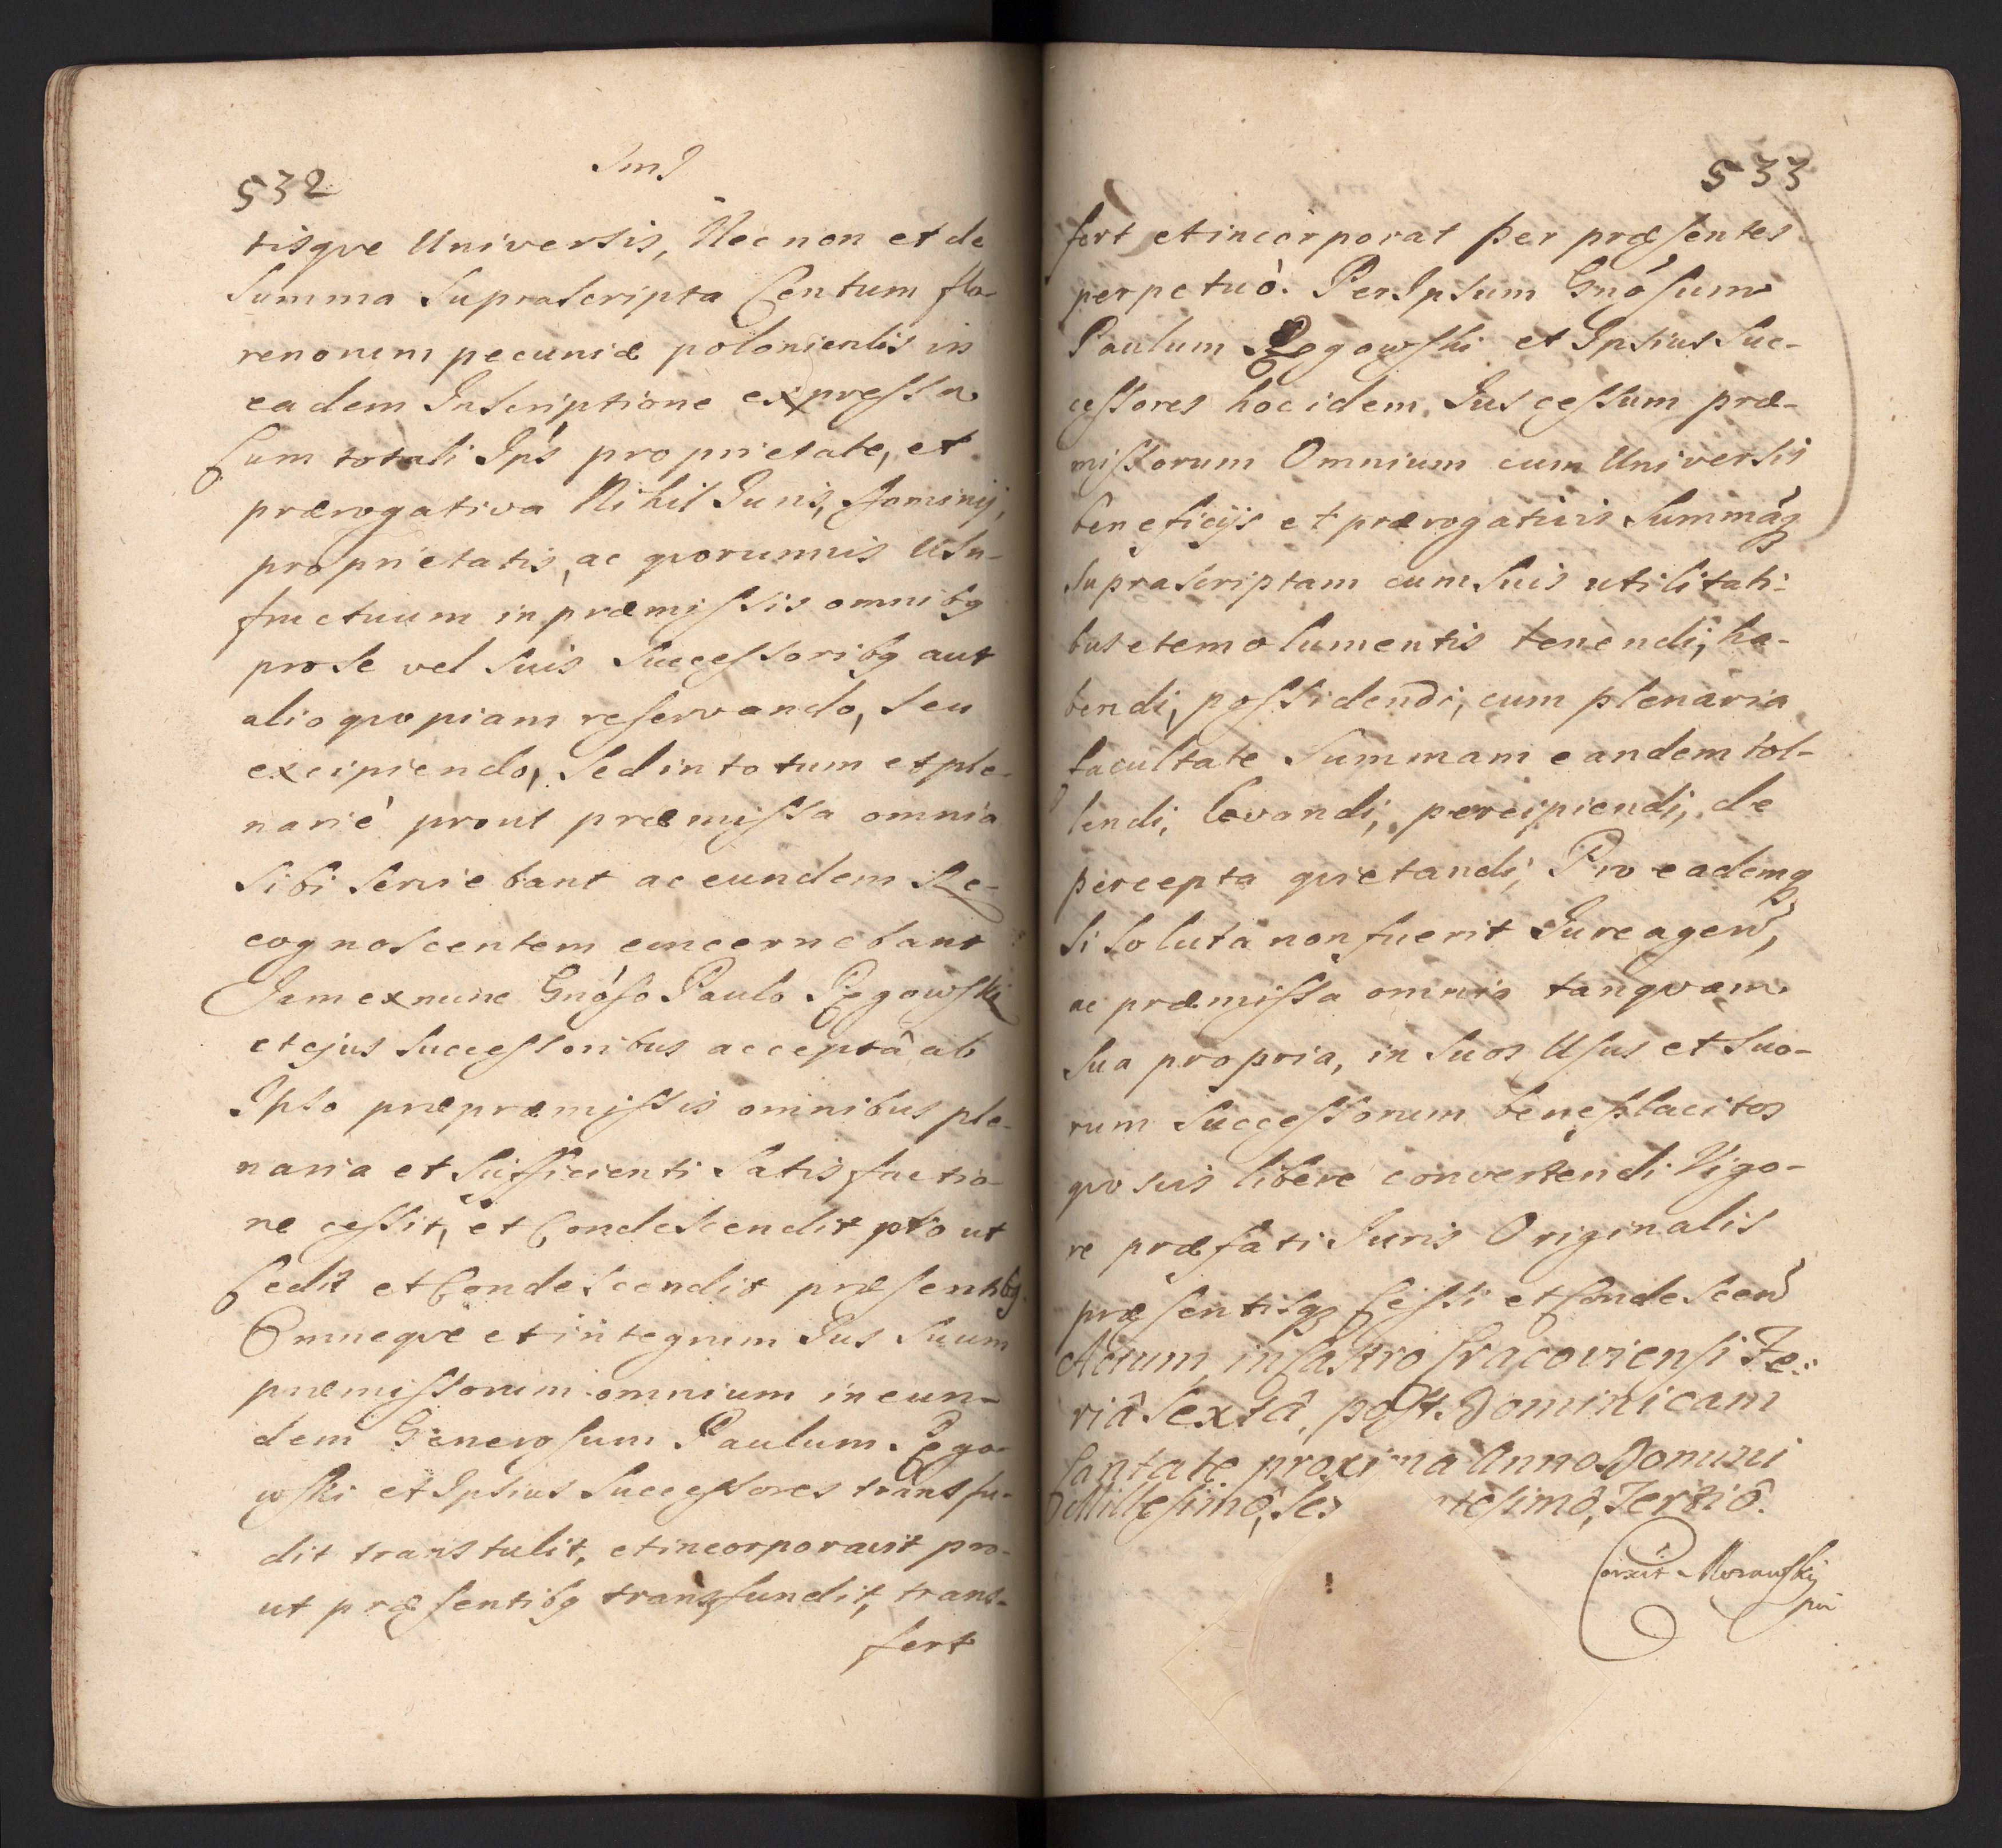 532
tisqve Universis, Nec non et de
Summa Suprascripta Centum flo-
renorum pecuniæ polonicalis in
eadem Inscriptione expressa
Cum totali Ips proprietate, et
prærogativa Nihil Juris, Dominij,
proprietatis, ac qvorumvis Usu-
fructuum in præmissis omnibq
pro se vel suis Successoribq aut
alio qvopiam reservando, seu
excipiendo, Sed in totum et ple-
nariè prout præmissa omnia
Sibi serviebant ac eundem Re-
cognoscentem concernebant
Jam ex nunc Gnóso Paulo Ręgowski
et ejus Successoribus acceptâ ab
Ipso præpræmissis omnibus ple-
naria et Sufficienti Satisfactio-
ne cessit, et Condescendit pto ut
Cedit et Condescendit præsentibq
Omneqve et integrum Jus Suum
præmissorum omnium in eun-
dem Generosum Paulum Ręgo-
wski et Ipsius Successores transfu-
dit transtulit, et incorporavit pro-
ut præsentibq transfundit, trans-
fert
533
fert et incorporat per præsentes
perpetuò. Per Ipsum Gnósum
Paulum Ręgowski et Ipsius Suc-
cessores hoc idem Jus cessum præ-
missorum Omnium cum Universis
beneficijs et prærogativis Summáq
Suprascriptam cum Suis utilitati-
bus et emolumentis tenendi, ha-
bendi, possidendi, cum plenaria
facultate Summam eandem tol-
lendi, levandi, percipiendi, de
percepta qvietandi, Pro eademq
si soluta non fuerit Jure agen,
ac præmissa omnia tanqvam
Sua propria, in Suos Usus et Suo-
rum Successorum beneplacitos
qvosvis libere convertendi Vigo-
re præfati Juris Originalis
præsentisq Cessi et Condescen
Actum in Castro Cracoviensi Fe:
riâ Sextâ, post Dominicam
Cantate proxima Anno Domini
Millesimô, Ses tesimô, Tertiô.
Morawski